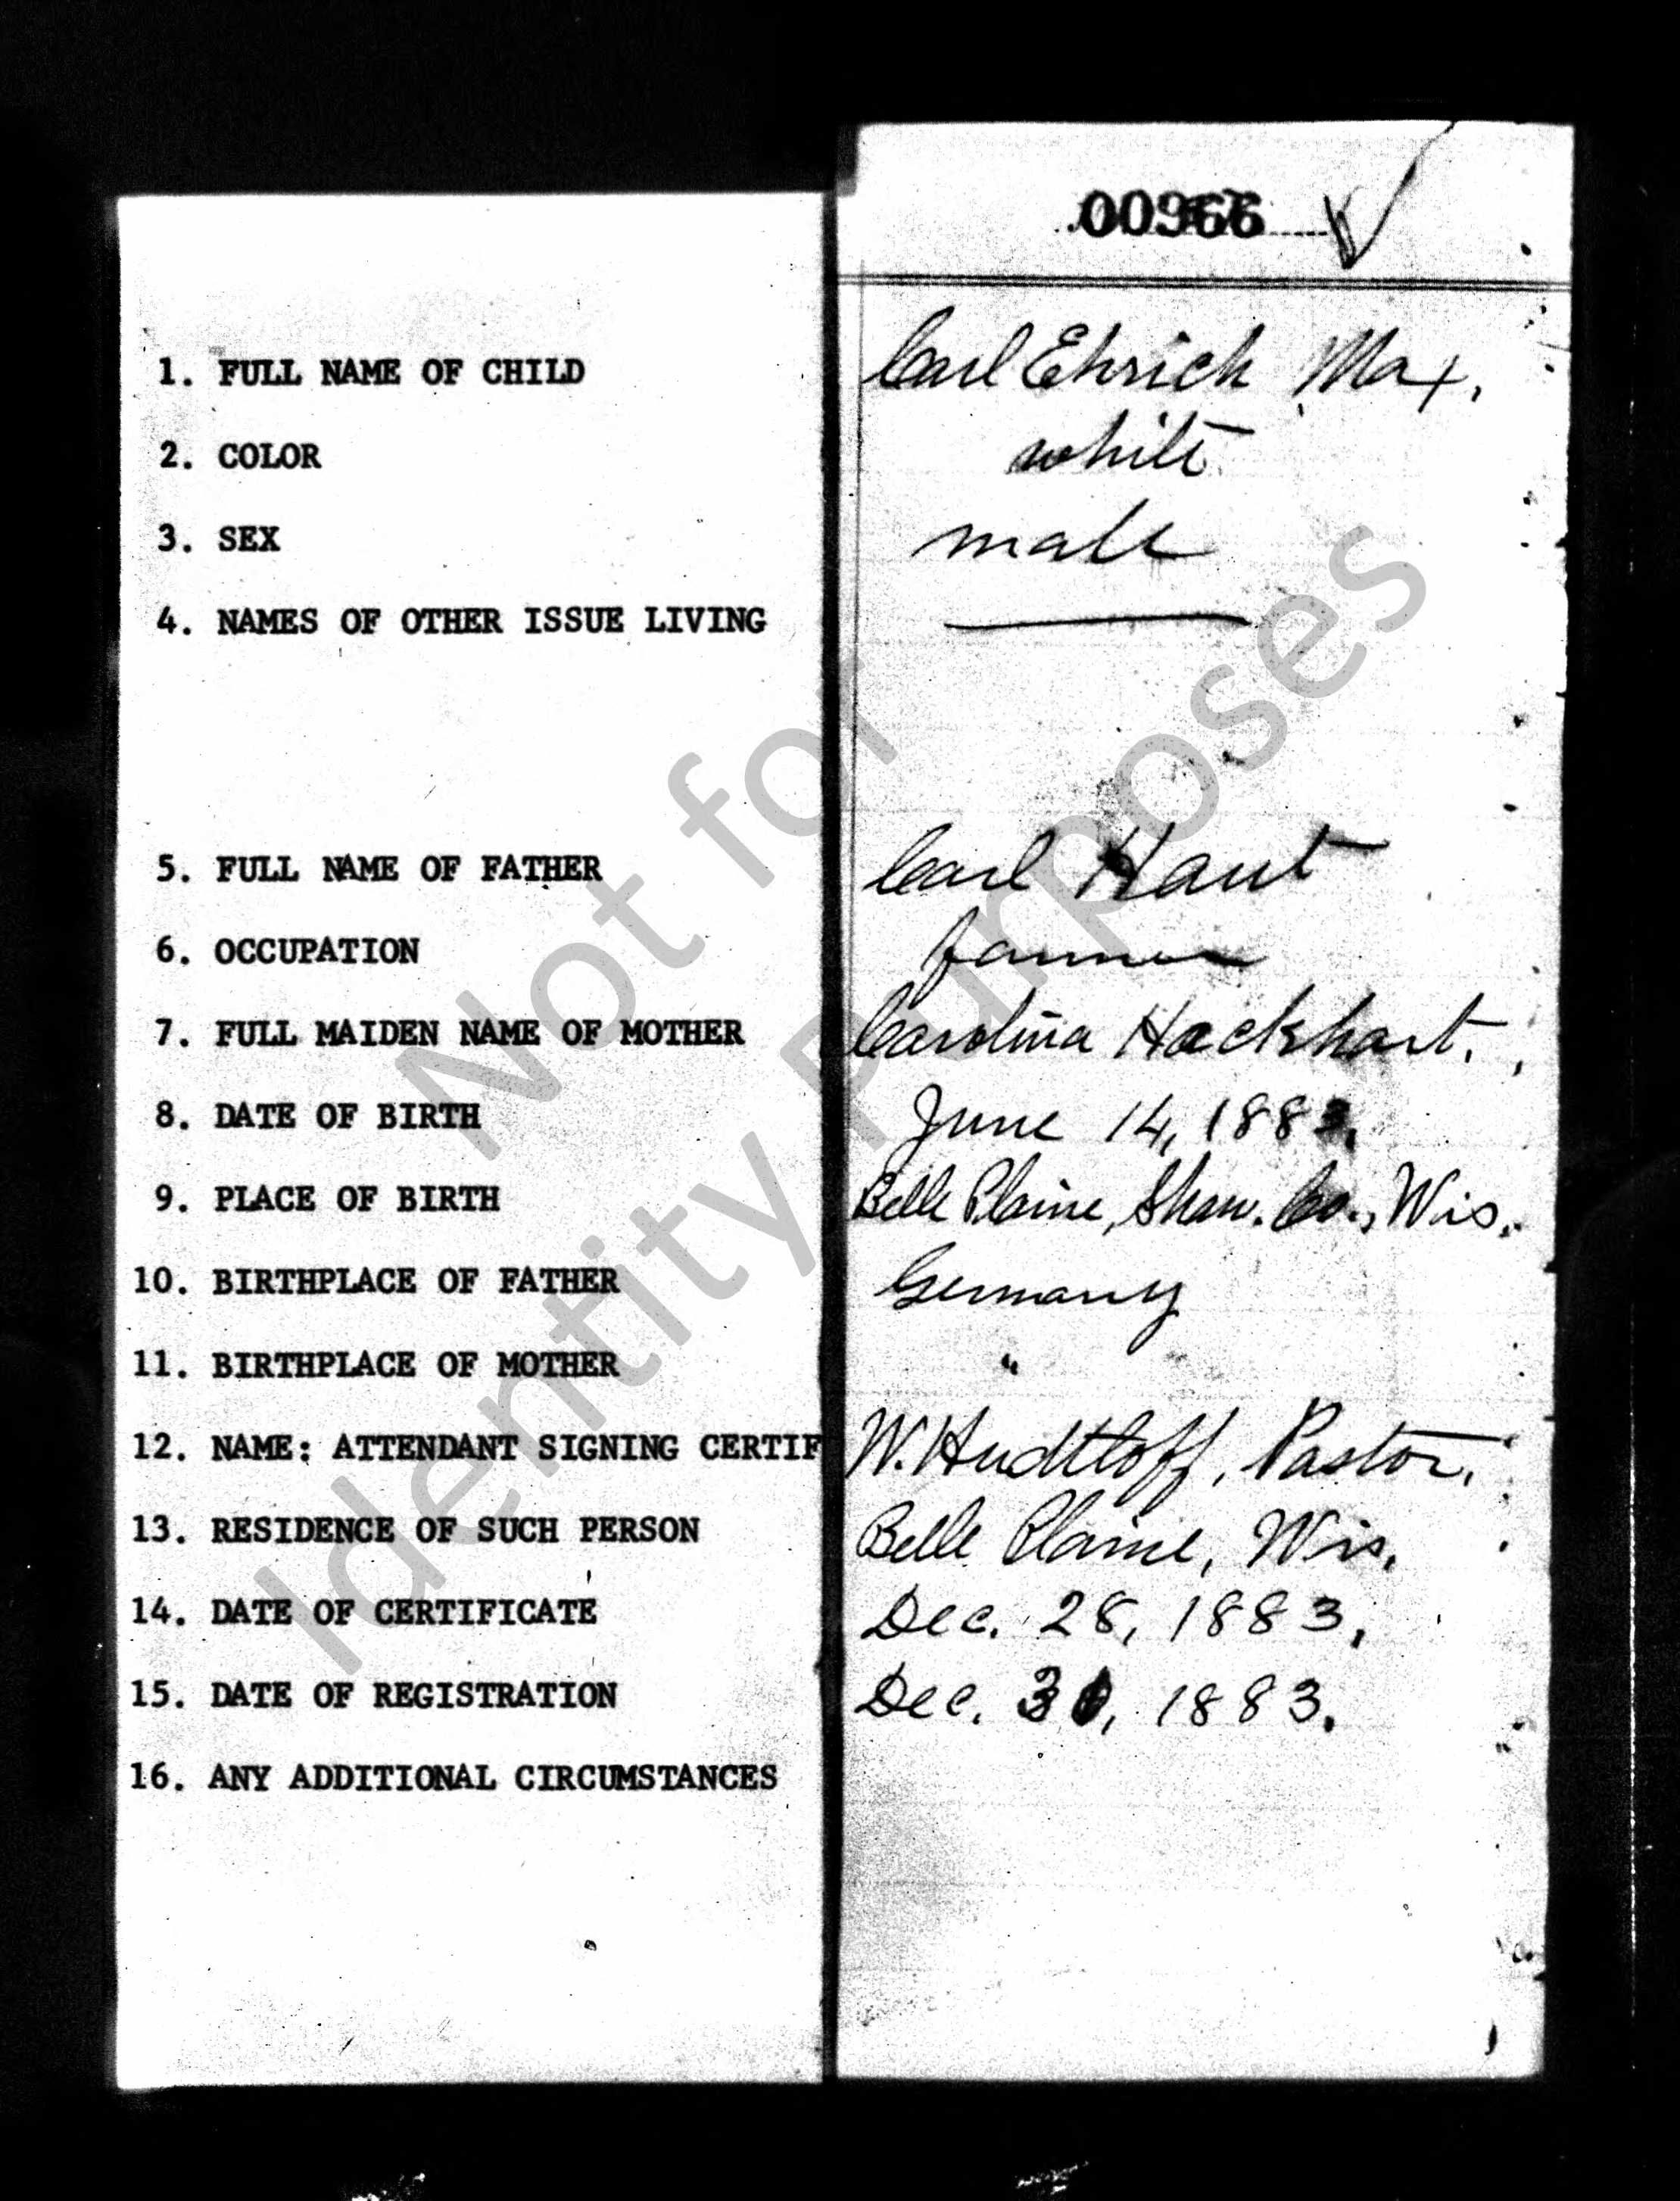 00966
1. FULL NAME OF CHILD Carl Ehrich Max.
2. COLOR white
3. SEX male
4. NAMES OF OTHER ISSUE LIVING
5. FULL NAME OF FATHER Carl Haut
6. OCCUPATION farmer
7. FULL MAIDEN NAME OF MOTHER Carolina Hackhart.
8. DATE OF BIRTH June 14, 1883.
9. PLACE OF BIRTH Belle Plaine, Shaw. Co., Wis.
10. BIRTHPLACE OF FATHER Germany
11. BIRTHPLACE OF MOTHER "
12. NAME: ATTENDANT SIGNING CERTIF W. Hudtloff, Pastor.
13. RESIDENCE OF SUCH PERSON Belle Plaine, Wis.
14. DATE OF CERTIFICATE Dec. 28, 1883.
15. DATE OF REGISTRATION Dec. 31, 1883.
16. ANY ADDITIONAL CIRCUMSTANCES
Not for
Identity Purposes